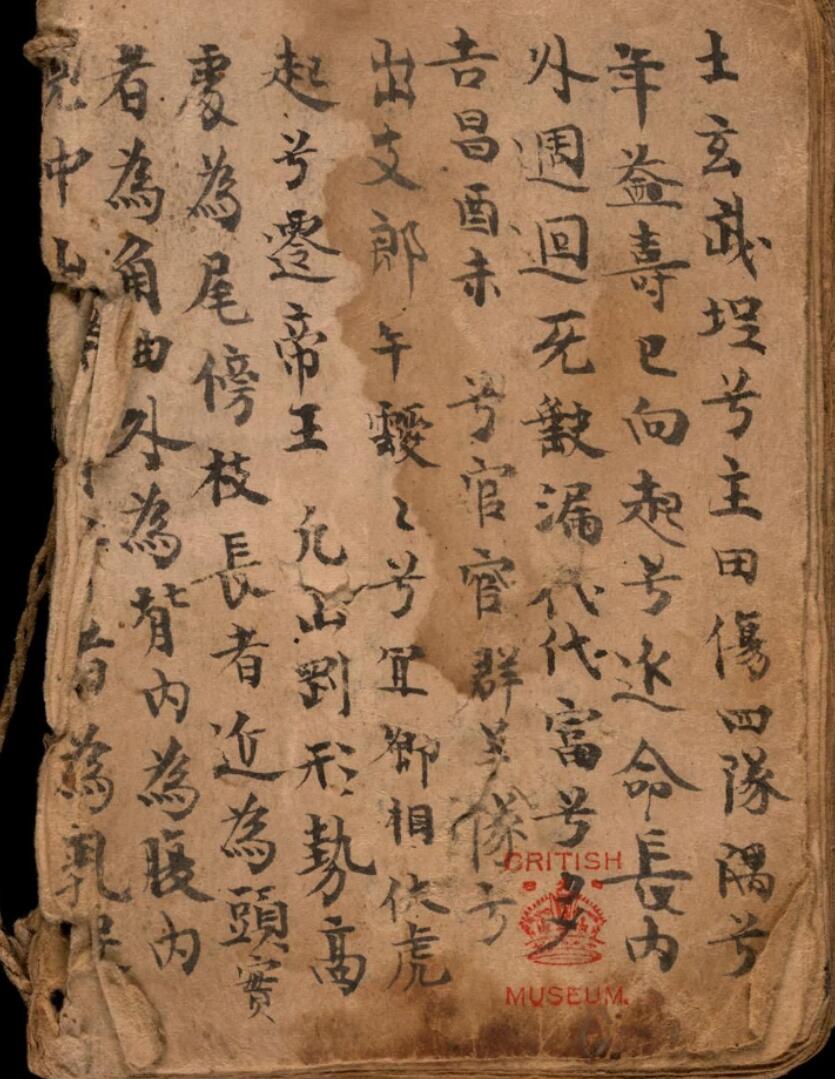 土玄武埕兮主田傷四隊隅兮
年益壽巳向起兮迯命長內
外週迴死斅漏代代富兮多
吉昌酉未 兮官官群英僚兮
出支郎午 〻兮宜卿相伏虎
起兮遷帝王 凡山罰形勢高
處為尾傍枝長者近為頭實
者為角曲外為背內為腹內
中山 者為乳
BRITISH
MUSEUM.